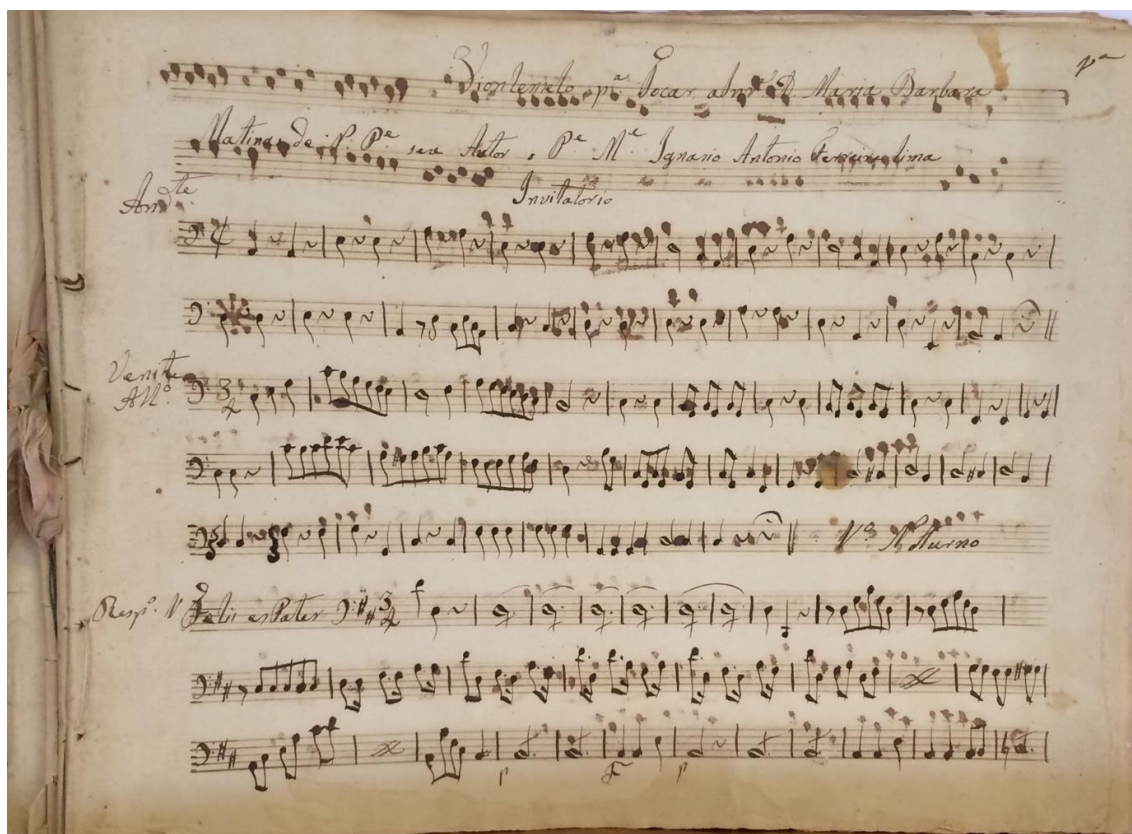 pª
Violonselo pª Tocar a Snrª D. Maria Barbara
Matinas de N. Pe. seu Autor o Pe Me Ignacio Antonio Ferreira Lima
Invitatorio
Andte
Venite
All.º
Nocturno
Resp.º 1 Felix es Pater
f
p F p